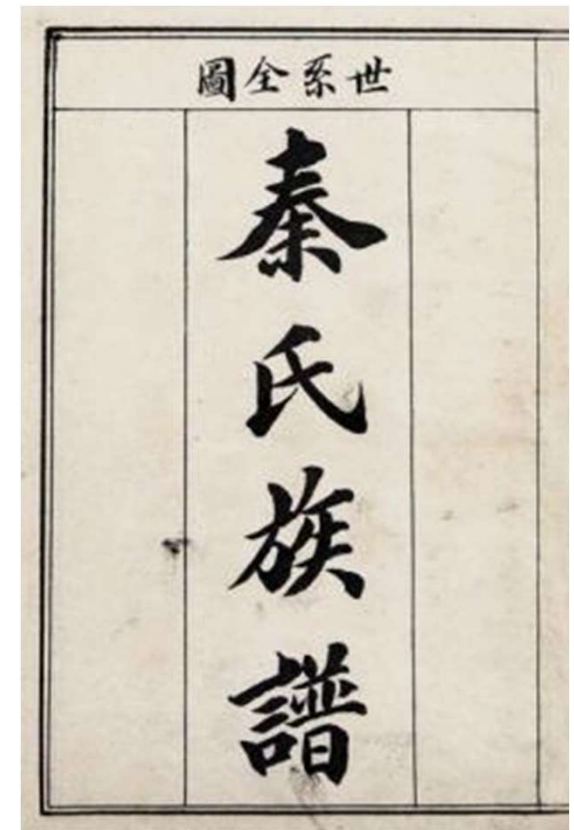 世系全圖
秦氏族譜